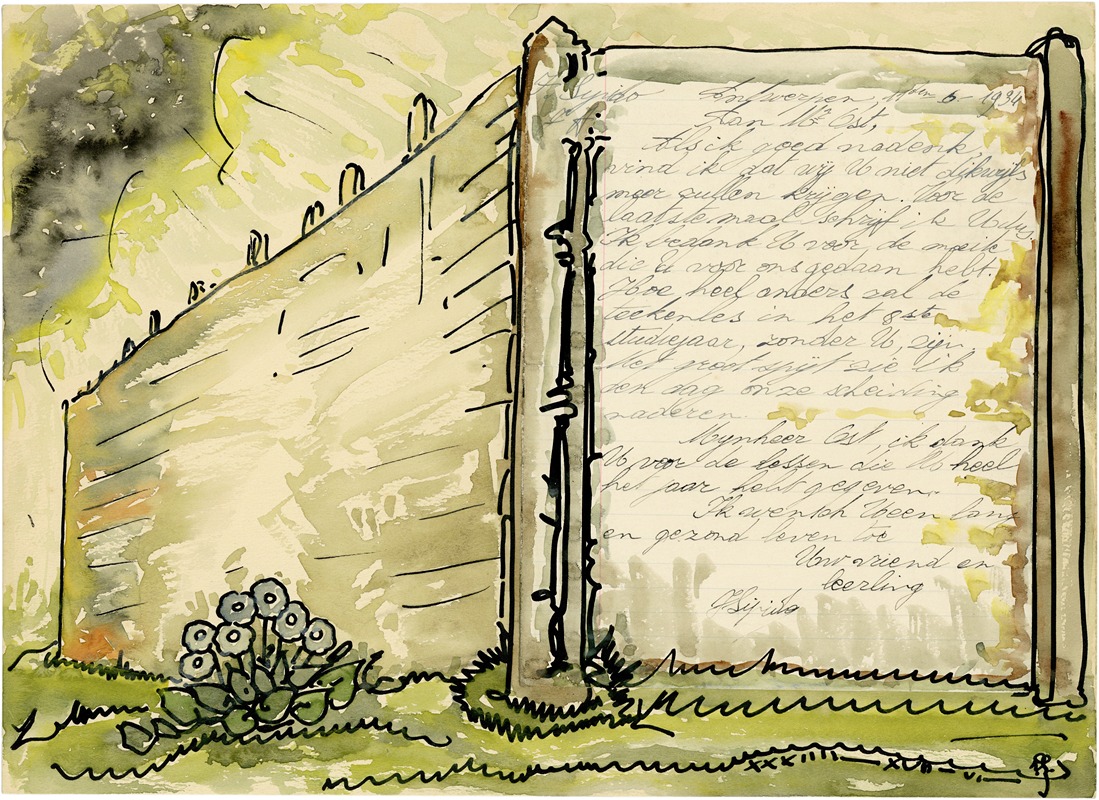 Antwerpen, 6 - 1934
Aan Mr Ost,
Als ik goed nadenk,
vind ik dat wij U niet dikwijls
meer zullen krijgen. Voor de
laatste maal schrijf ik U
Ik bedank U voor de moeite
die U voor ons gedaan hebt.
Hoe heel anders zal de
teekenles in het 8ste
studiejaar, zonder U, zijn
Met groot spijt zie ik
den dag onze scheiding
naderen.
Mynheer Ost, ik dank
U voor de lessen die U heel
het jaar hebt gegeven.
Ik wensch U een lang
en gezond leven toe
Uw vriend en
leerling